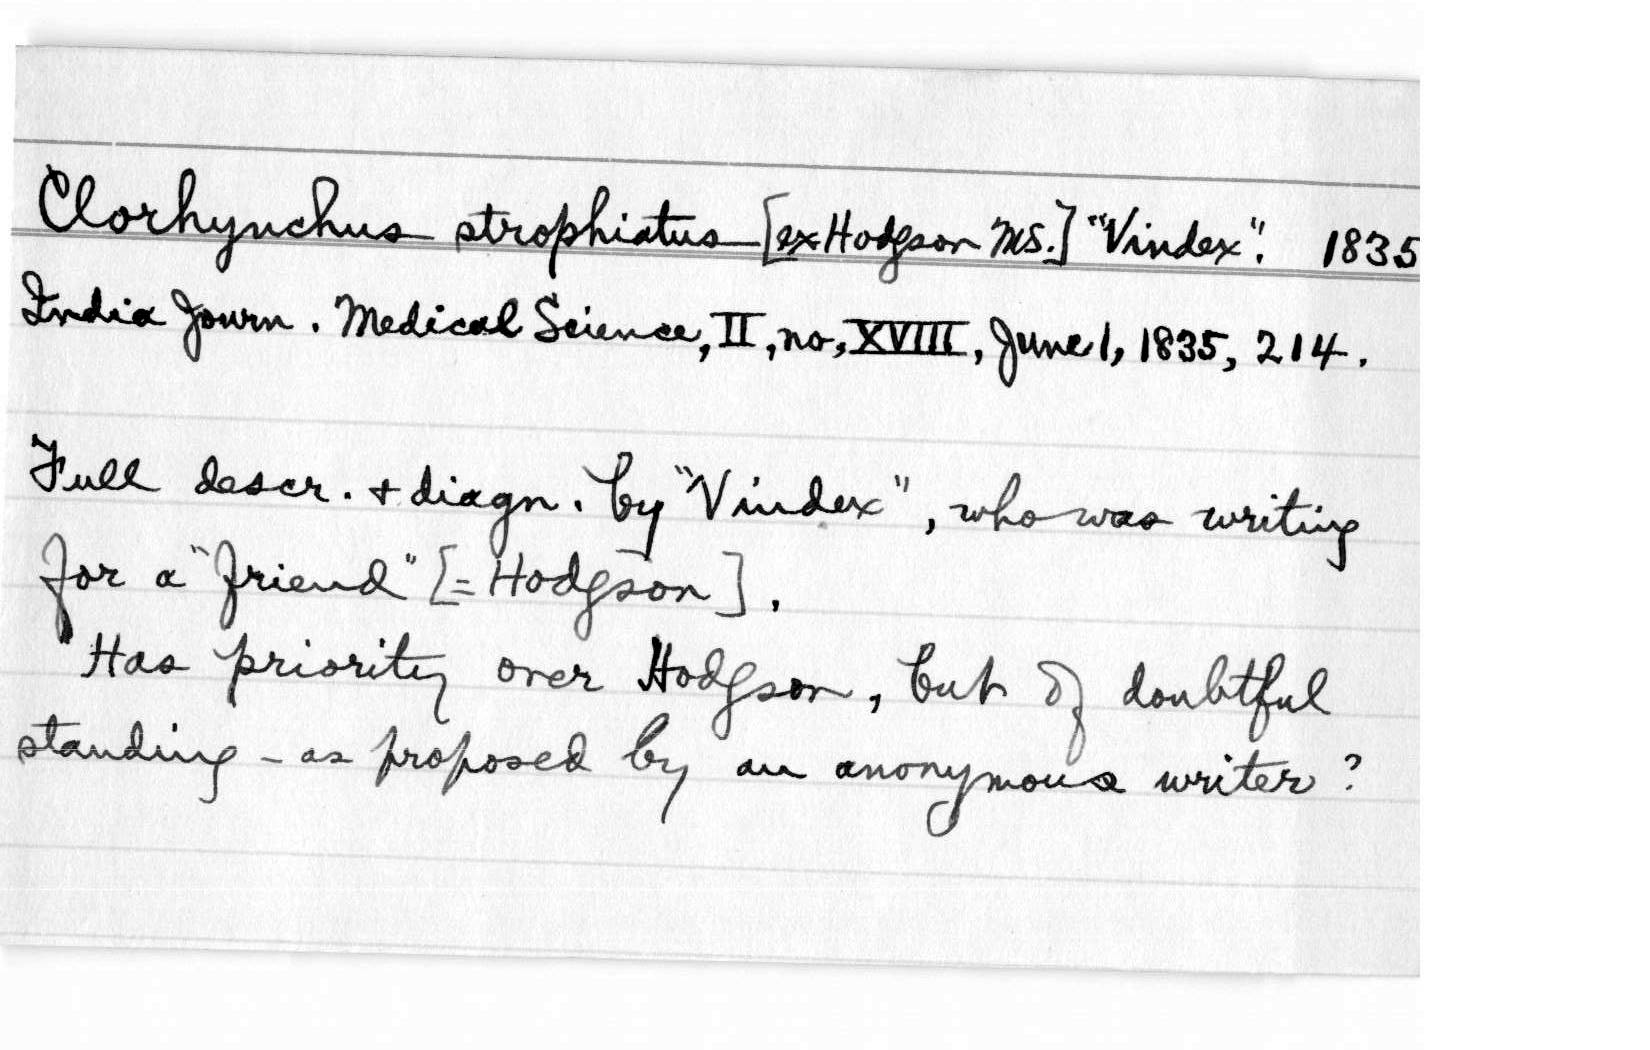 Clorhynchus strophiatus [ex Hodgson MS.] "Vindex". 1835
India Journ. Medical Science, II, no, XVIII, June 1, 1835, 214.
Full descr. + diagn. by "Vindex", who was writing
for a "friend" [= Hodgson].
Has priority over Hodgson, but of doubtful
standing - as proposed by an anonymous writer?